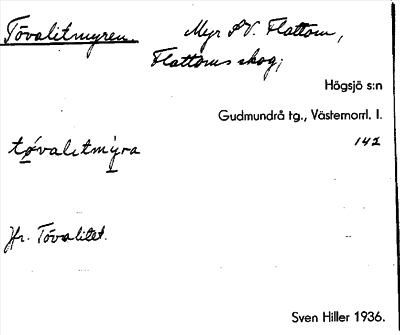 Tövalitmyren. Myr S.V. Flattom,
Flattoms skog;
Högsjö s:n
Gudmundrå tg., Västernorrl. l.
142
tøvalitmỳra
Jfr. Tövalitet.
Sven Hiller 1936.